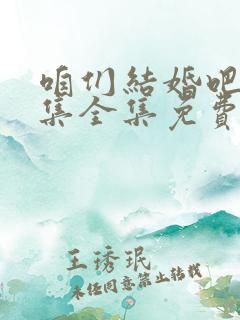 咱们結婚吧
集全集免費
王琇珉
未经同意禁止转载